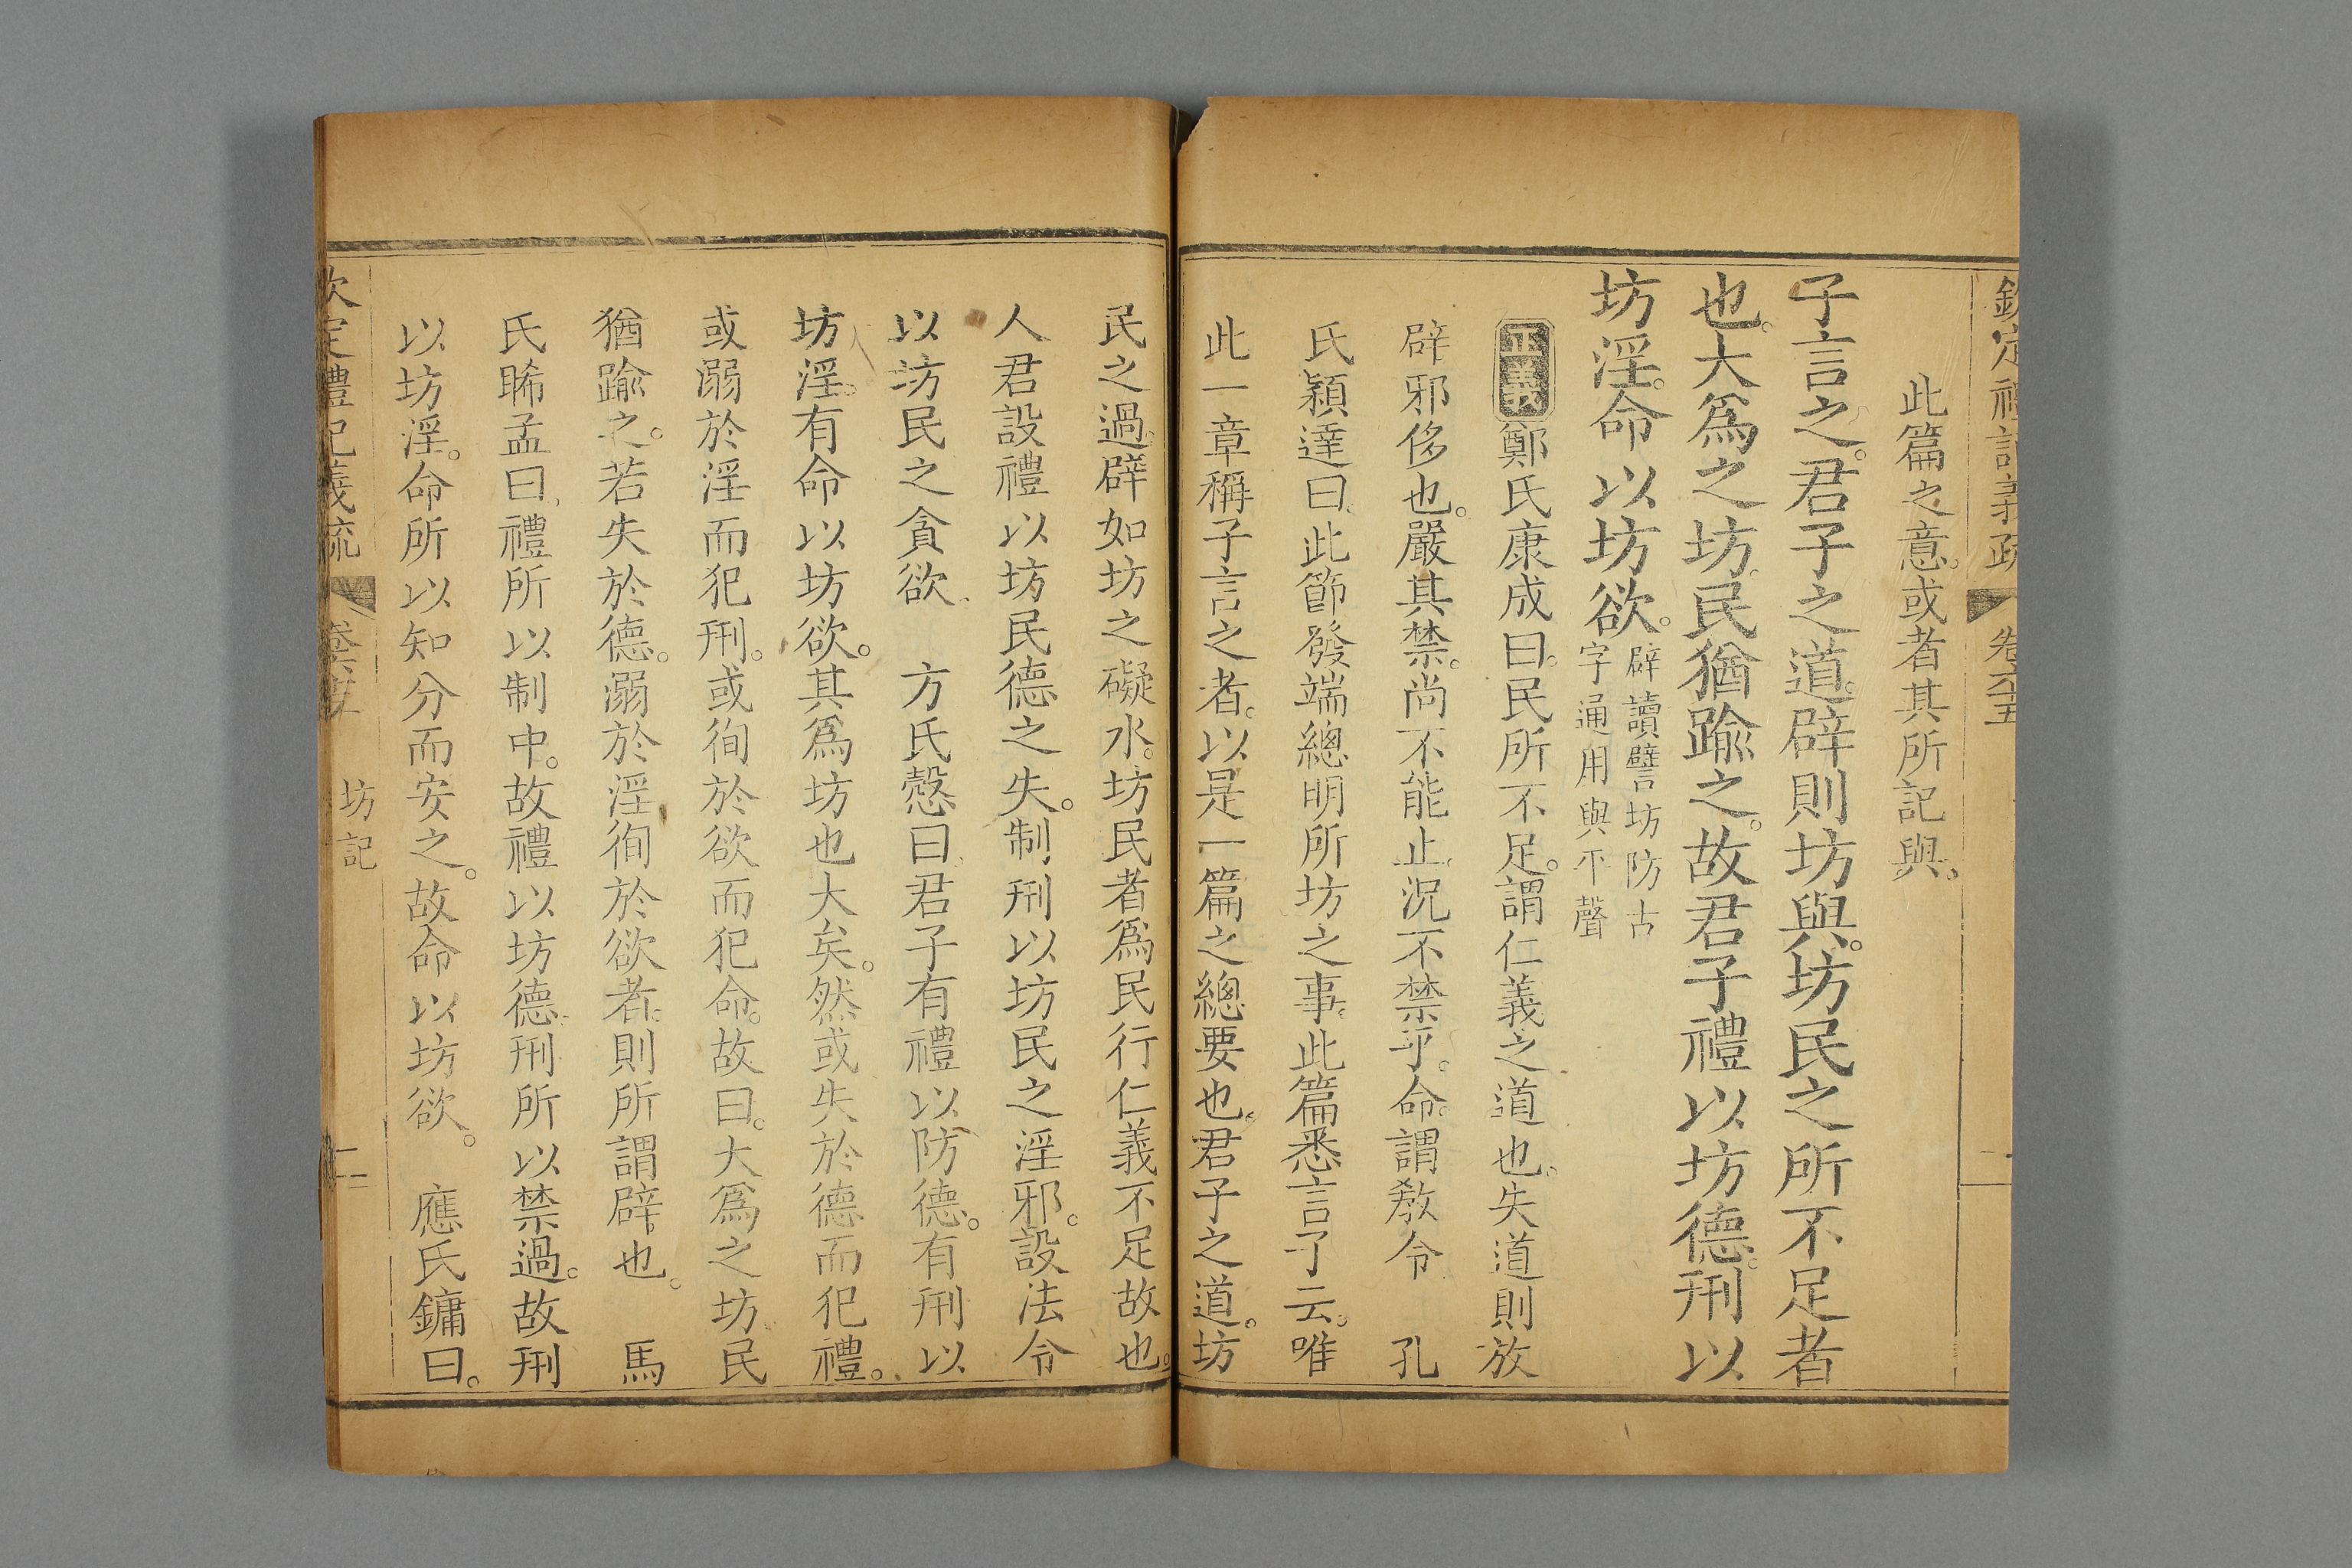 欽定禮記義疏 卷六十五 一
此篇之意。或者其所記與。
子言之。君子之道。辟則坊與。坊民之所不足者
也。大爲之坊。民猶踰之。故君子禮以坊德。刑以
坊淫。命以坊欲。
辟讀譬坊防古
字通用與平聲
正義鄭氏康成曰。民所不足。謂仁義之道也。失道則放
辟邪侈也。嚴其禁。尚不能止。況不禁乎。命。謂教令 孔
氏穎達曰。此節發端總明所坊之事。此篇悉言子云。唯
此一章稱子言之者。以是一篇之總要也。君子之道。坊
民之過。辟如坊之礙水。坊民者爲民行仁義不足故也。
人君設禮以坊民德之失。制刑以坊民之淫邪。設法令
以坊民之貪欲。 方氏慤曰。君子有禮以防德。有刑以
坊淫。有命以坊欲。其爲坊也大矣。然或失於德而犯禮。
或溺於淫而犯刑。或徇於欲而犯命。故曰。大爲之坊。民
猶踰之。若失於德。溺於淫。徇於欲者。則所謂辟也。 馬
氏睎孟曰。禮所以制中。故禮以坊德。刑所以禁過。故刑
以坊淫。命所以知分而安之。故命以坊欲。 應氏鏞曰。
欽定禮記義疏 坊記 二